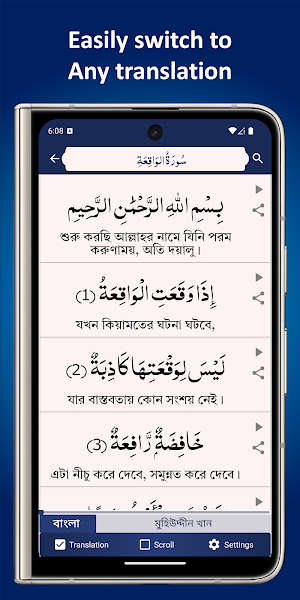 Easily switch to
Any translation
6:08
سُورَةُ الوَاقِعَةِ
بِسْمِ اللهِ الرَّحْمٰنِ الرَّحِيْمِ
শুরু করছি আল্লাহর নামে যিনি পরম
করুণাময়, অতি দয়ালু।
إِذَا وَقَعَتِ الْوَاقِعَةُ (1)
যখন কিয়ামতের ঘটনা ঘটবে,
لَيْسَ لِوَقْعَتِهَا كَاذِبَةٌ (2)
যার বাস্তবতায় কোন সংশয় নেই।
خَافِضَةٌ رَّافِعَةٌ (3)
এটা নীচু করে দেবে, সমুন্নত করে দেবে।
বাংলা
মুহিউদ্দীন খান
Translation
Scroll
Settings